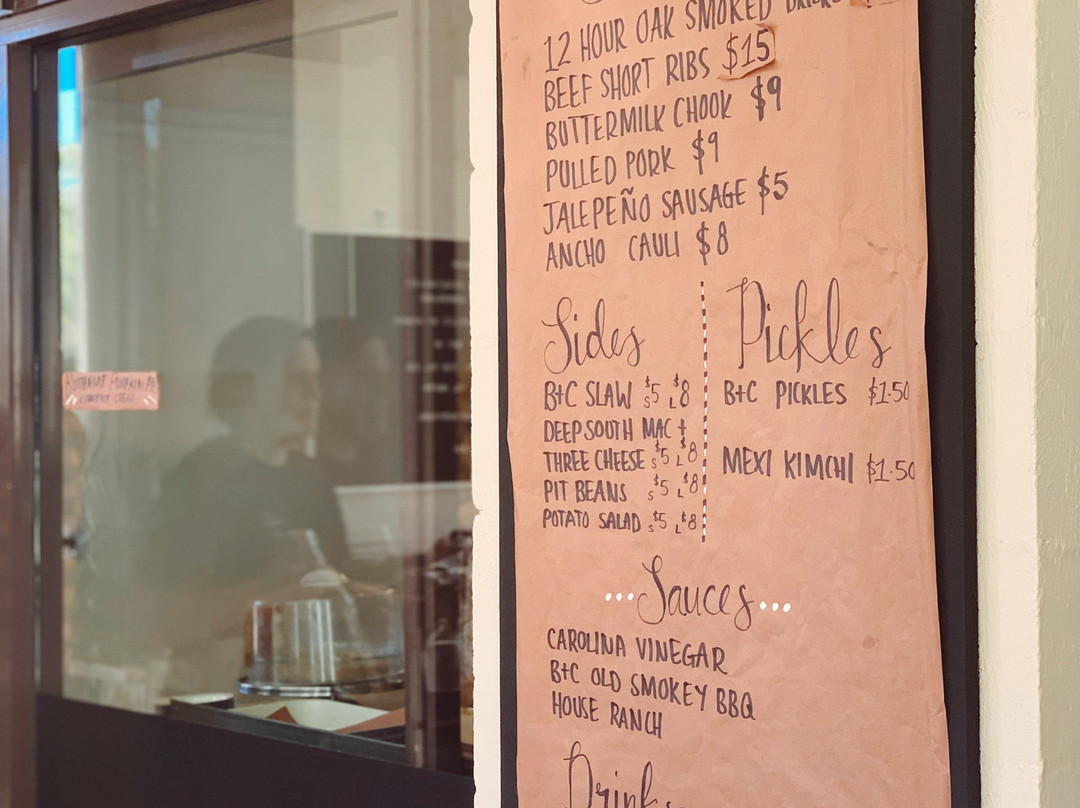 12 HOUR OAK SMOKED
BEEF SHORT RIBS $15
BUTTERMILK CHOOK $9
PULLED PORK $9
JALEPEÑO SAUSAGE $5
ANCHO CAULI $8
Sides
B+C SLAW S $5 L $8
DEEP SOUTH MAC +
THREE CHEESE S $5 L $8
PIT BEANS S $5 L $8
POTATO SALAD S $5 L $8
Pickles
B+C PICKLES $1.50
MEXI KIMCHI $1.50
...Sauces...
CAROLINA VINEGAR
B+C OLD SMOKEY BBQ
HOUSE RANCH
Drinks